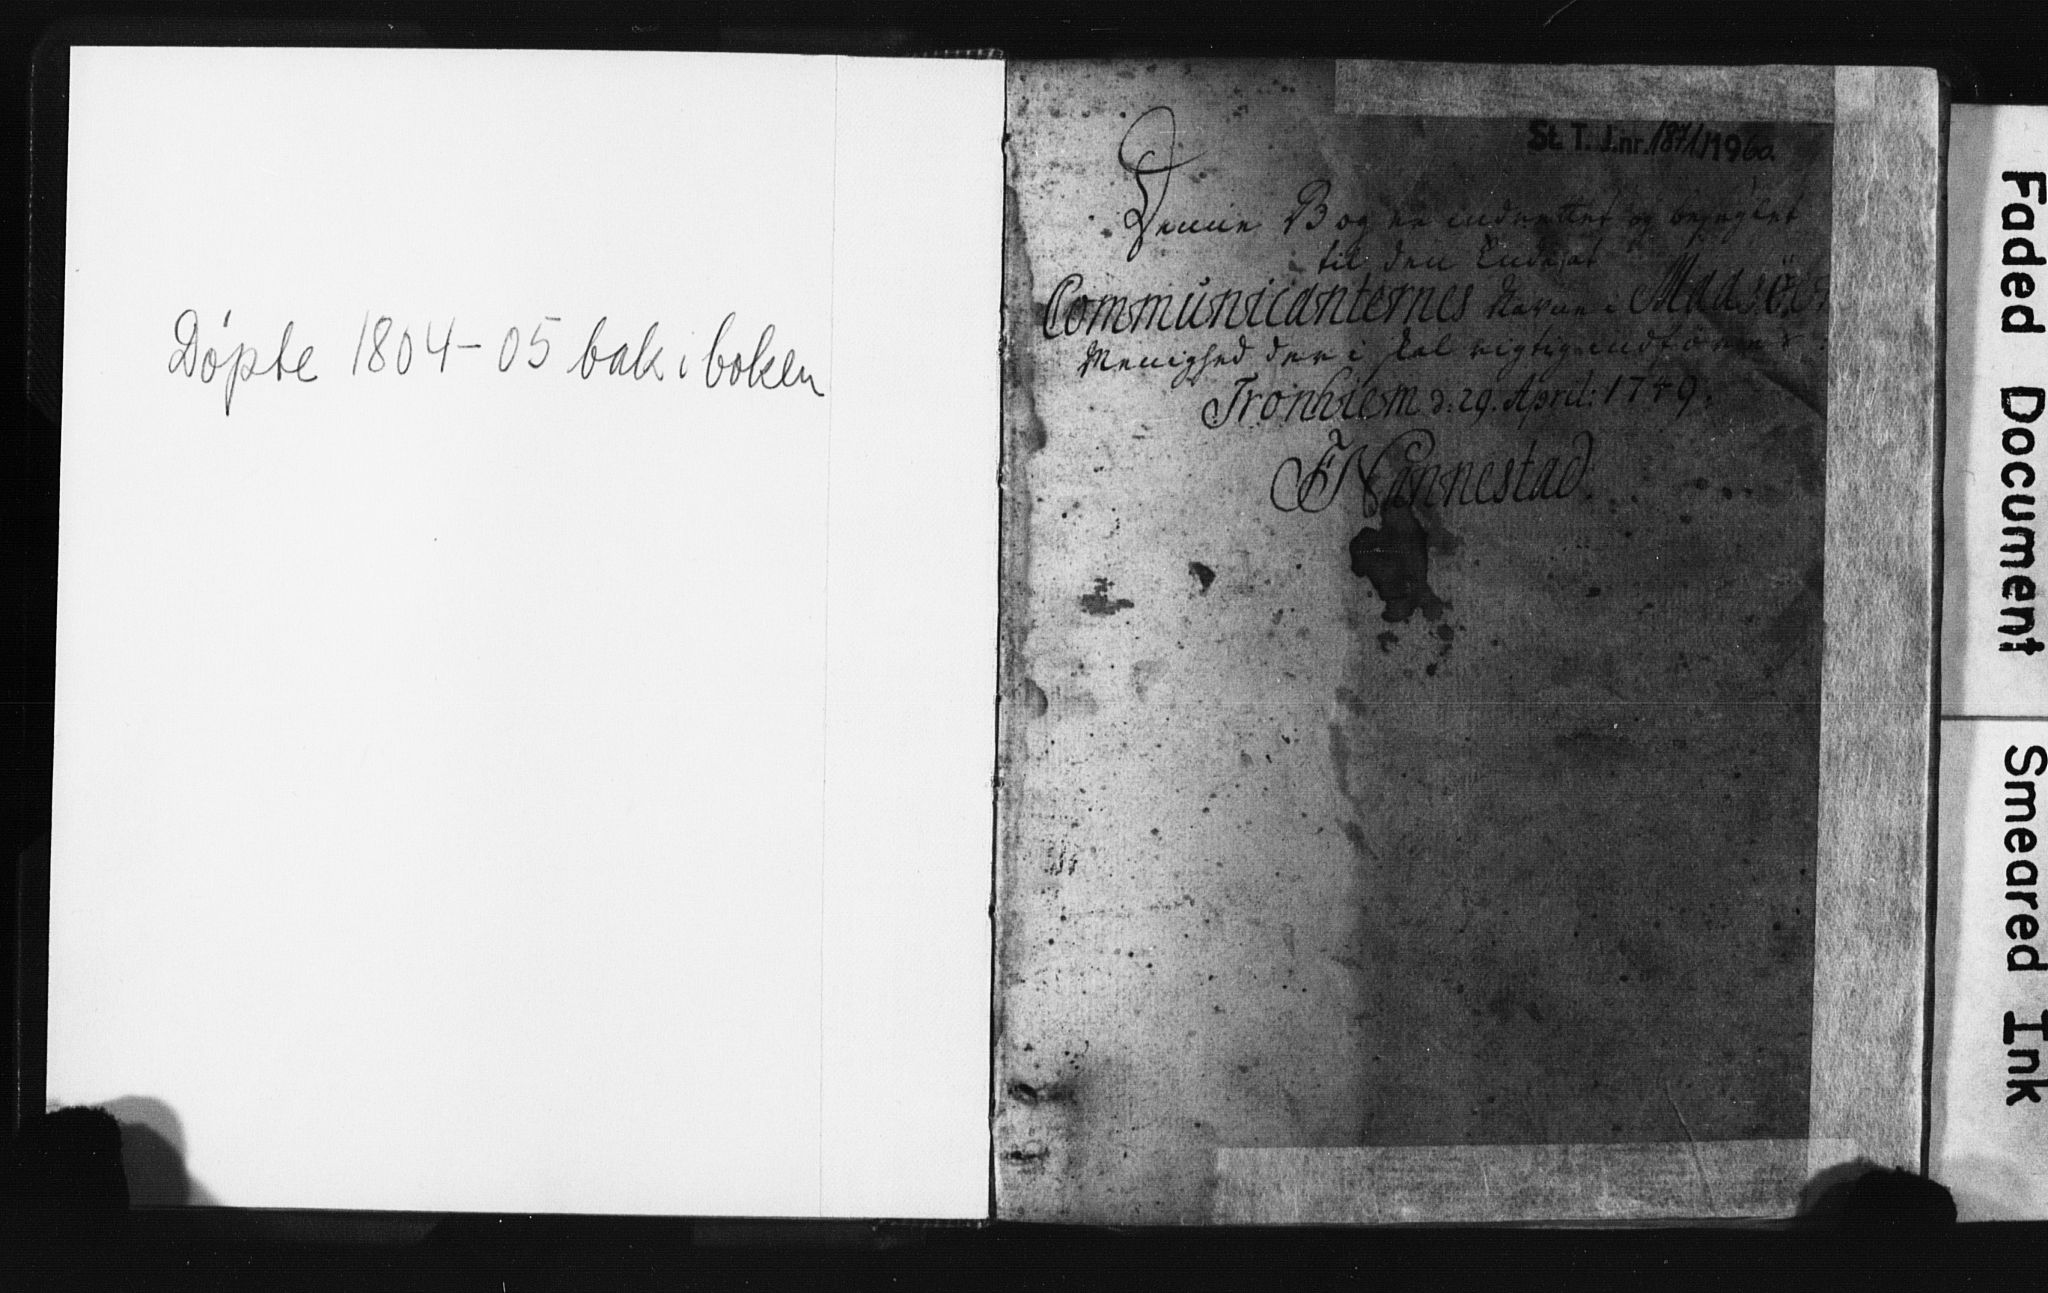 Döpte 1804-05 bak i boken
St. T. J.nr. 1871/1960.
Denne Bog er indrettet og beseglet
til den Ende, at
Communicanternes Navne i Maasöe
Menighed der i skal rigtig indföres
Tronhiem d: 29. April: 1749.
F Nannestad.
Faded Document
Smeared Ink